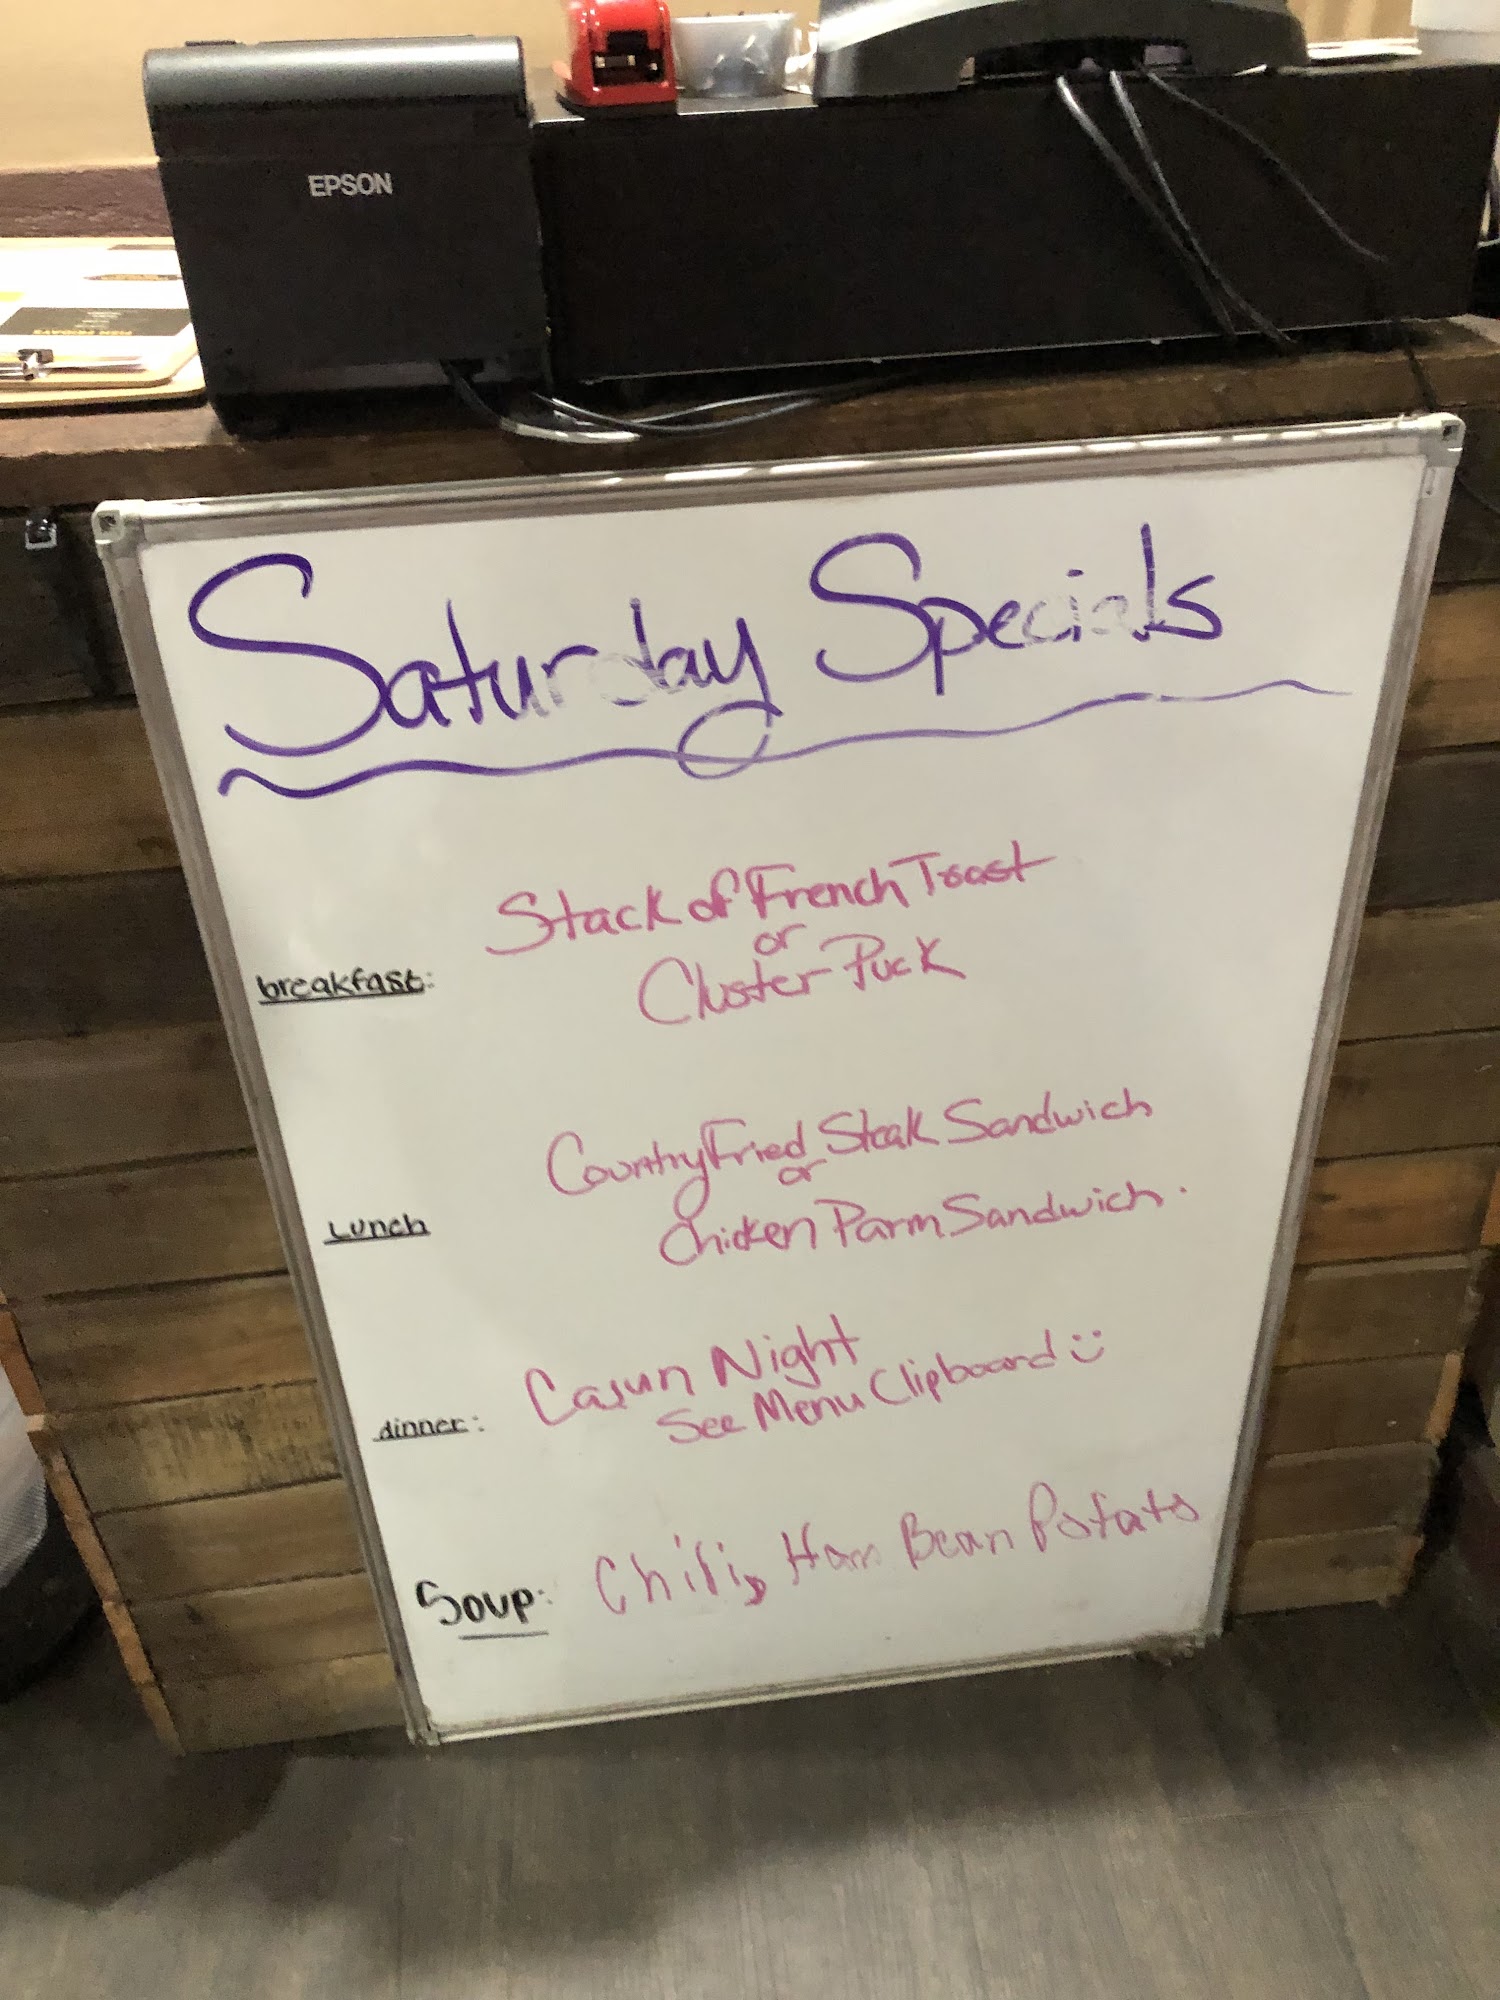 EPSON
Saturday Specials
Stack of French Toast
or
breakfast: Cluster Puck
Country Fried Steak Sandwich
or
Lunch Chicken Parm Sandwich.
Cajun Night
dinner: See Menu Clipboard :)
Soup: Chili, Ham Bean Potato